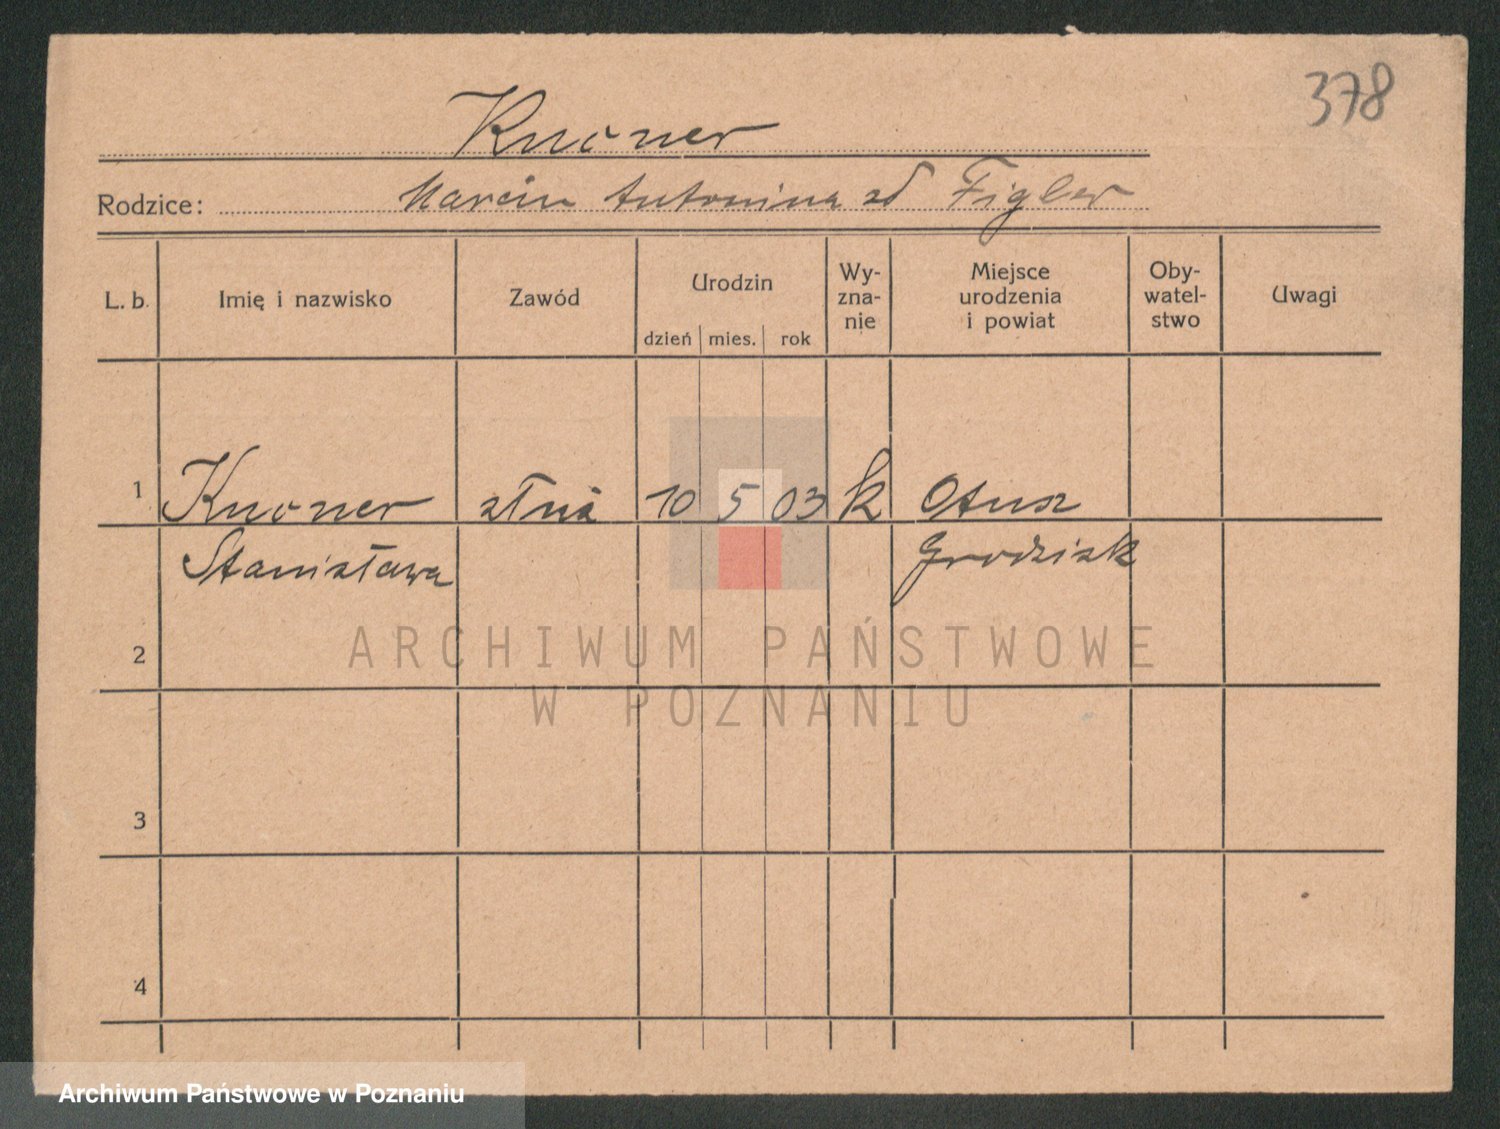 378
Knoner
Rodzice: Marcin Antonina zd Figler
L. b. Imię i nazwisko Zawód Urodzin dzień mies. rok Wy-zna-nie Miejsce urodzenia i powiat Oby-watel-stwo Uwagi
1 Knoner 10 5 03 k Otusz
Stanisława Grodzisk
2
ARCHIWUM PAŃSTWOWE
W POZNANIU
3
4
Archiwum Państwowe w Poznaniu